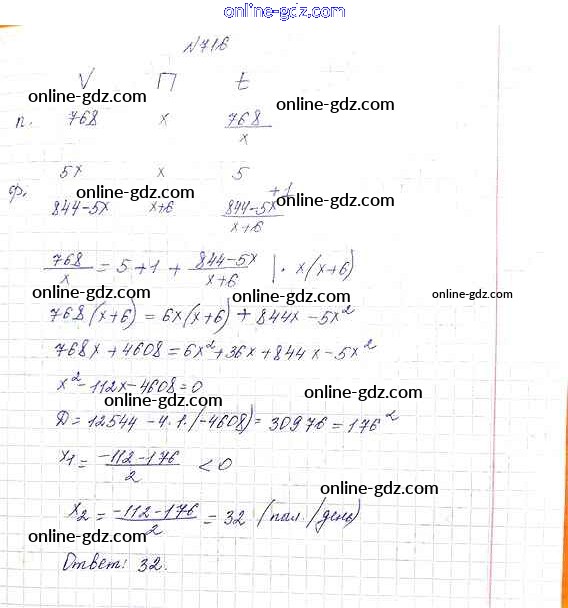 online-gdz.com
N716
V П t
online-gdz.com online-gdz.com
п. 768 x 768/x
5x x 5
ф. online-gdz.com +1 online-gdz.com
844-5x x+6 844-5x/x+6
768/x = 5+1 + 844-5x/x+6 | · x(x+6)
online-gdz.com online-gdz.com online-gdz.com
768(x+6) = 6x(x+6) + 844x - 5x²
768x + 4608 = 6x² + 36x + 844x - 5x²
x² - 112x - 4608 = 0
online-gdz.com
D = 12544 - 4·1·(-4608) = 30976 = 176²
online-gdz.com
x₁ = -112-176/2 < 0
online-gdz.com
x₂ = -112-176/2 = 32 (пал./день)
online-gdz.com
Ответ: 32.
online-gdz.com